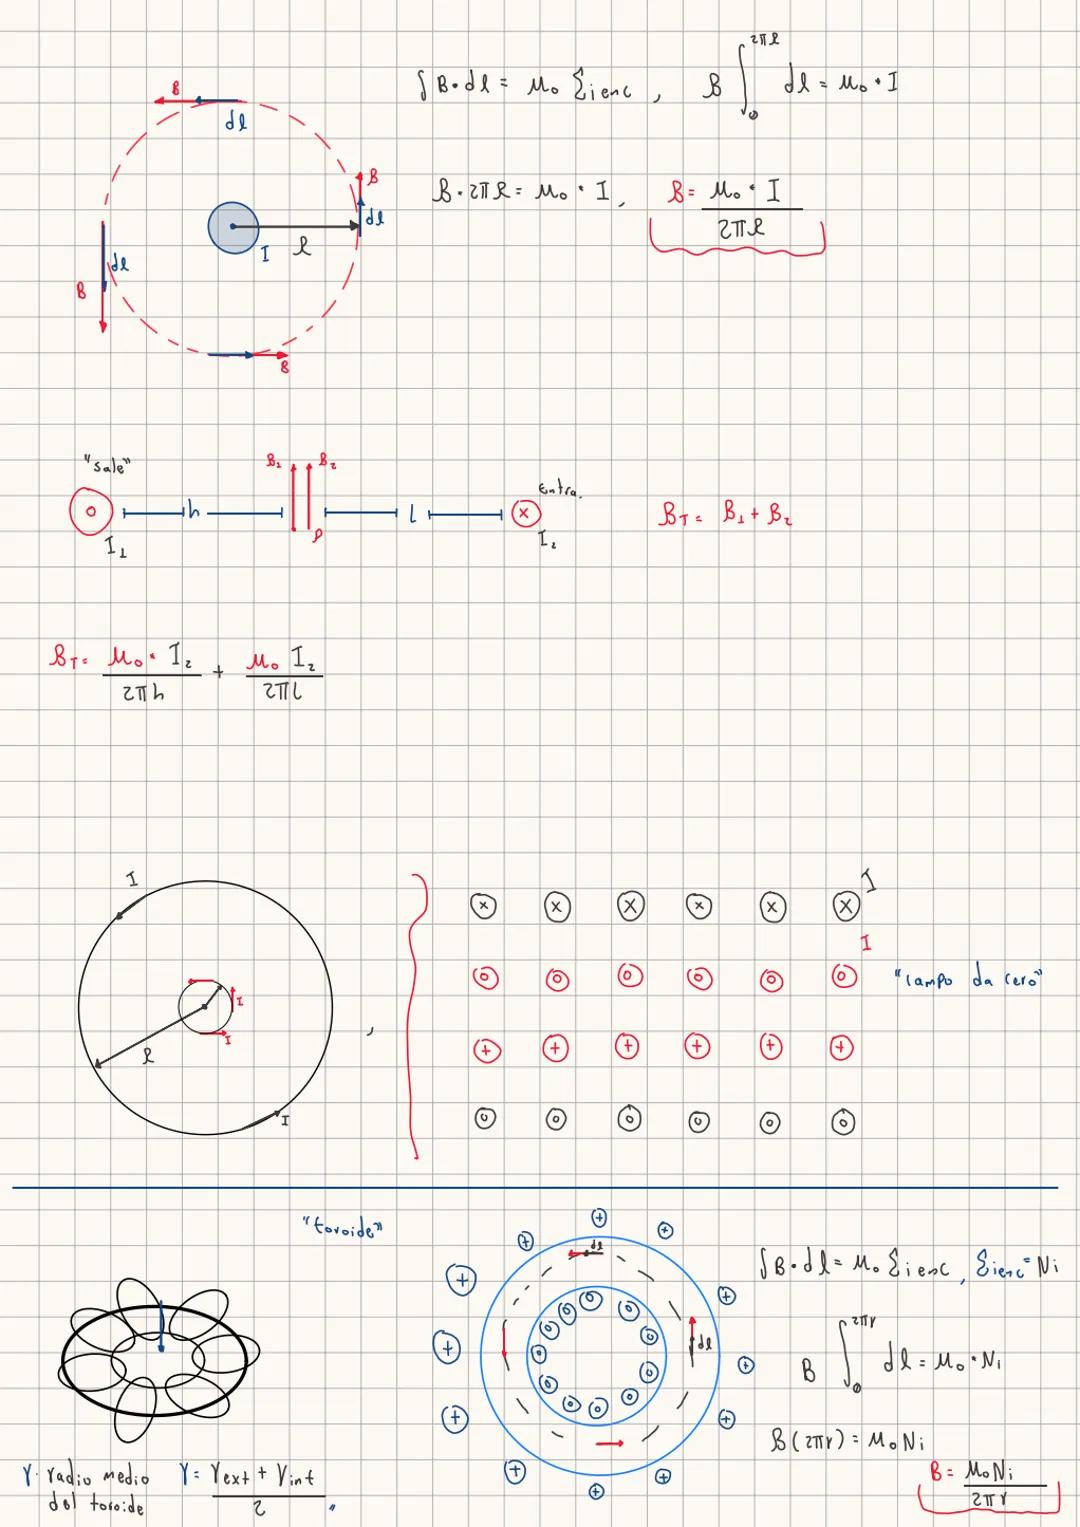 ∫B·dl = μ₀ Σienc , B ∫₀^{2πR} dl = μ₀ · I
B
dl
B
dl
I
R
dl
B
B
B·2πR = μ₀ · I, B = μ₀ · I / 2πR
"sale"
B₁ B₂
Entra.
h
l
I₁
P
I₂
B_T = B₁ + B₂
B_T = μ₀ · I₂ / 2πh + μ₀ I₂ / 2πl
I
I
I
R
I
I
I
"campo da cero"
"toroide"
dl
dl
∫B·dl = μ₀ Σienc , Σienc = Ni
B ∫₀^{2πr} dl = μ₀·Ni
B(2πr) = μ₀Ni
B = μ₀Ni / 2πr
r· radio medio
del toroide
r = rext + rint / 2 "